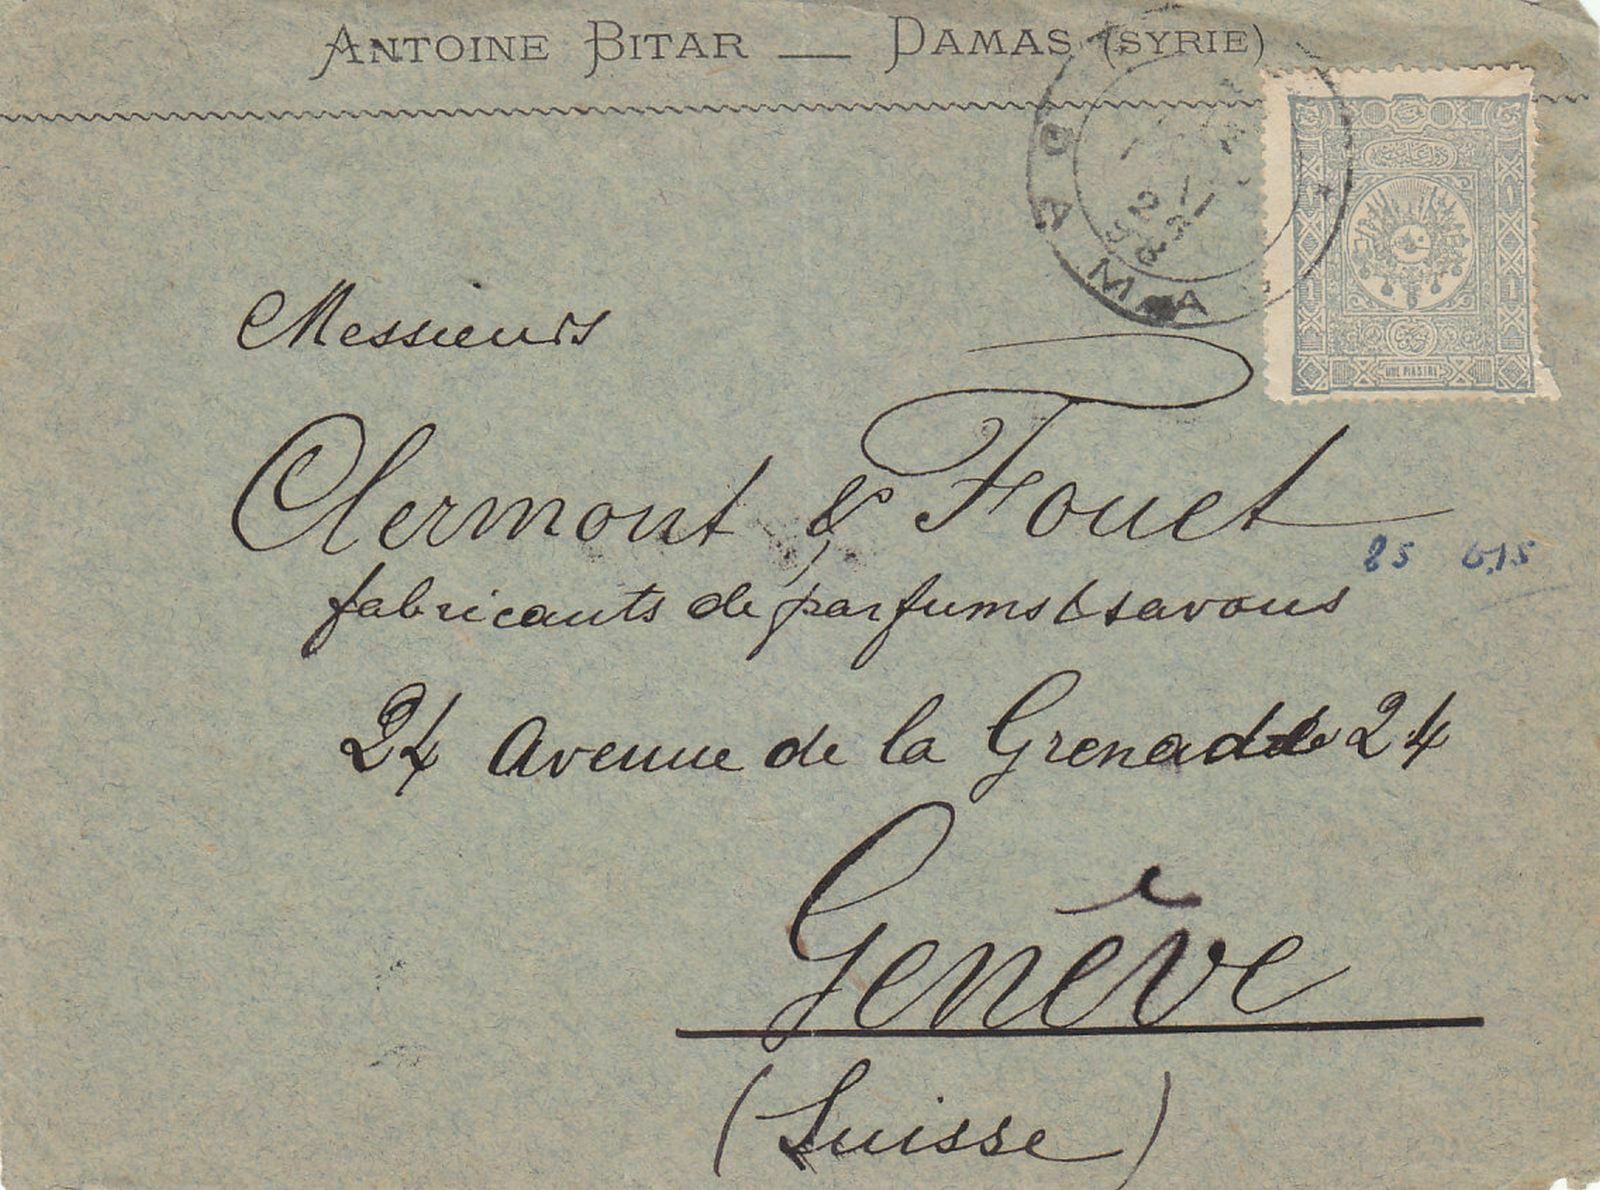 ANTOINE BITAR — DAMAS (SYRIE)
DAMA
25
98
1 1
1 1
UNE PIASTRE
Messieurs
Clermont & Fouet
85
fabricants de parfums & savons
24 Avenue de la Grenade 24
Genève
(Suisse)